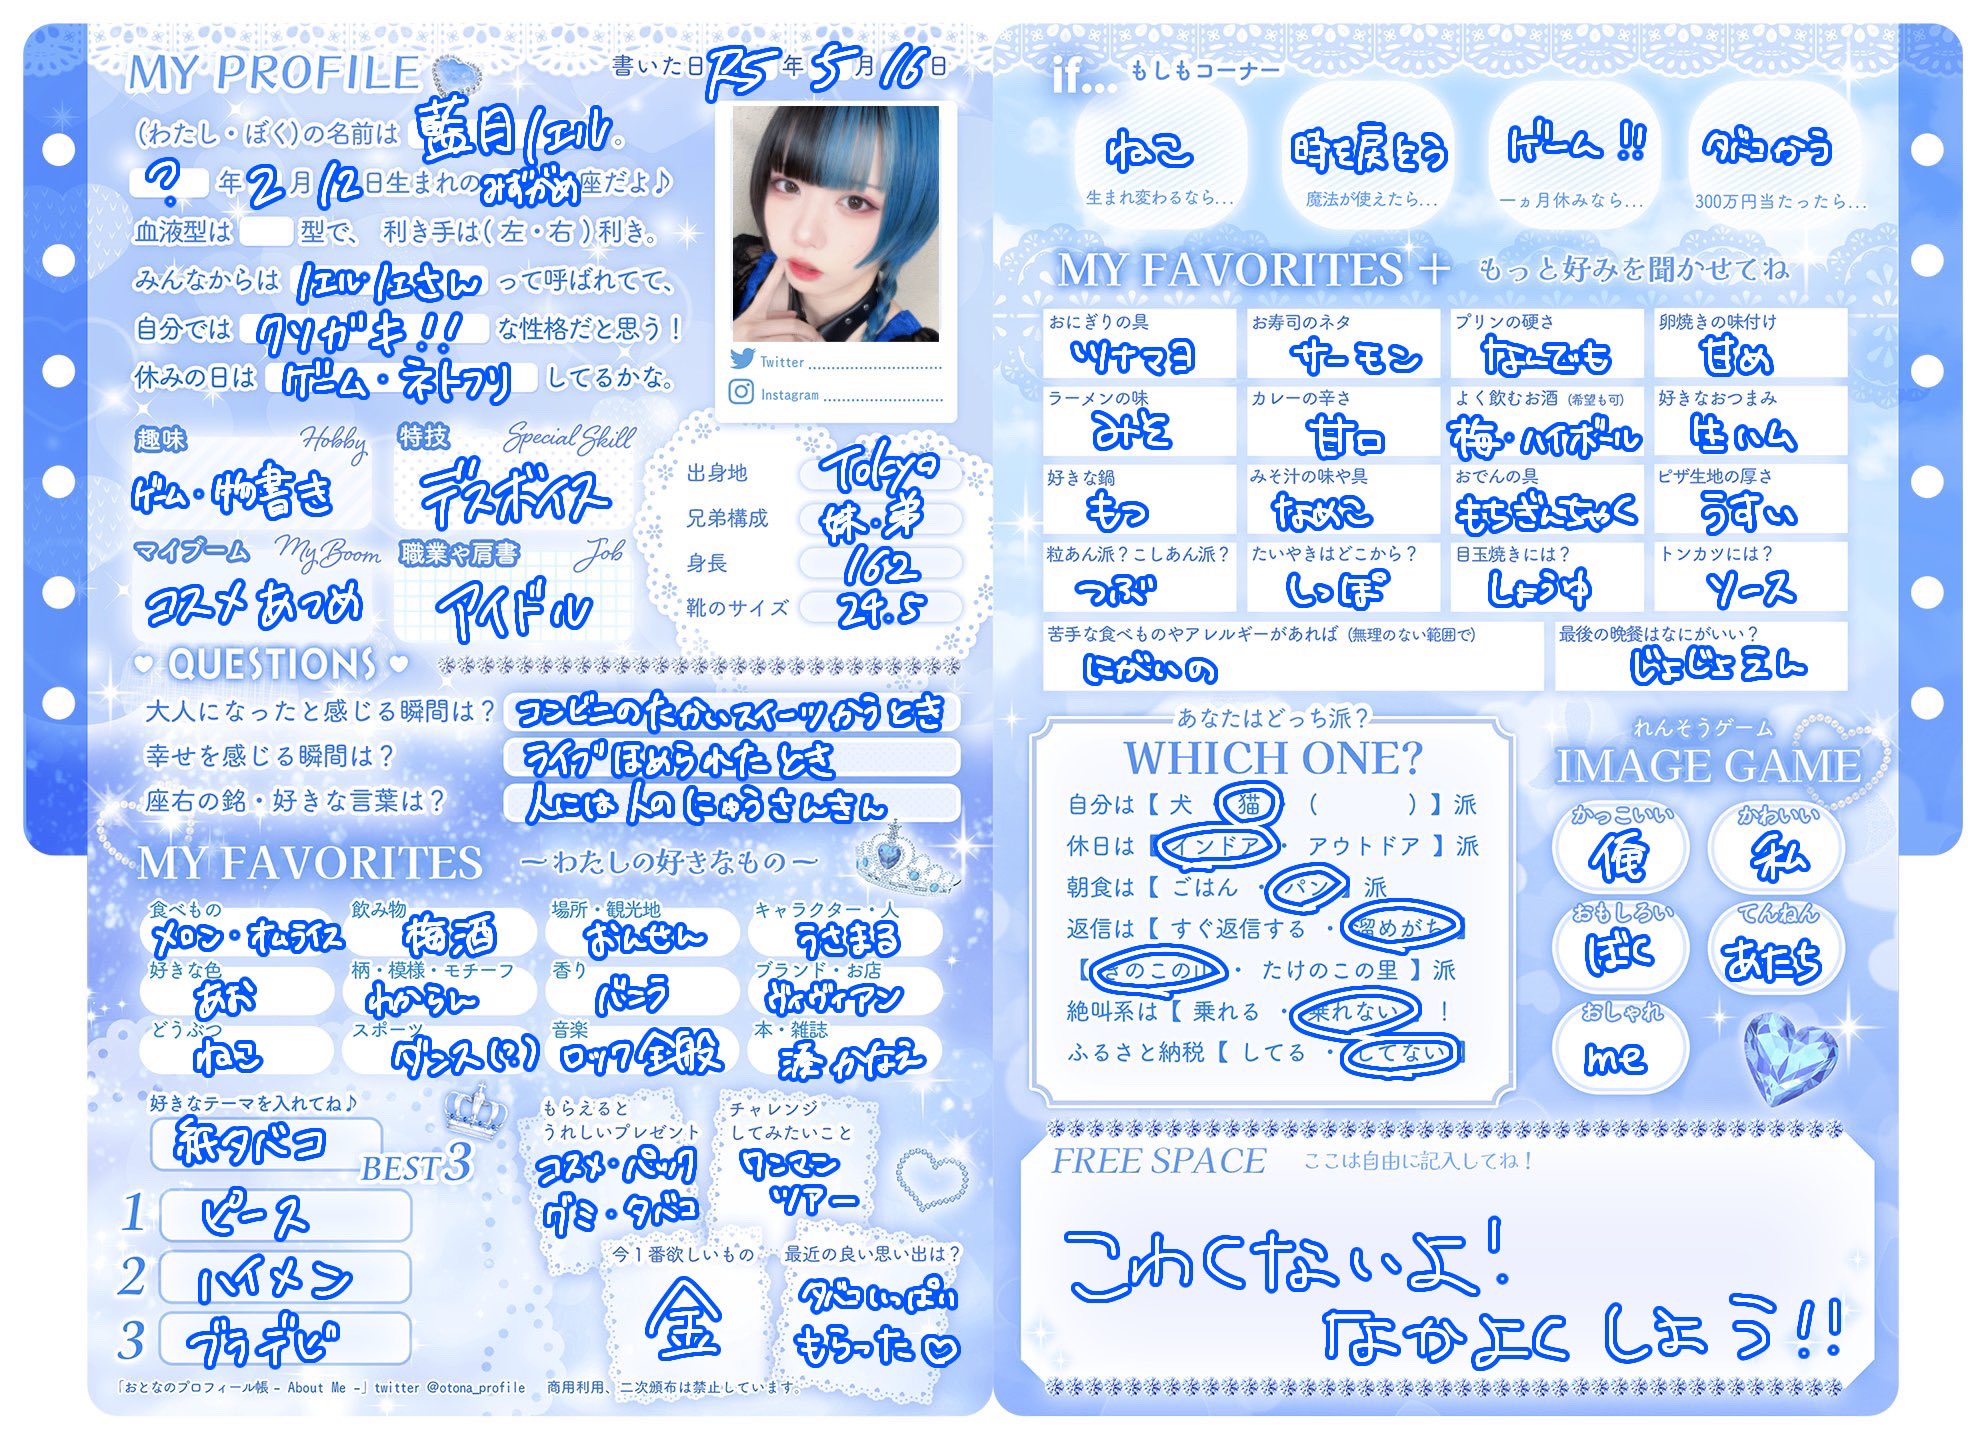 MY PROFILE
書いた日 R5年 5月 16日
(わたし・ぼく)の名前は 藍月ノエル。
? 年 2月 12日生まれの みずがめ 座だよ♪
血液型は 型で、 利き手は( 左・右 )利き。
みんなからは ノエル・ノエさん って呼ばれてて、
自分では クソガキ!! な性格だと思う!
休みの日は ゲーム・ネトフリ してるかな。
Twitter
Instagram
趣味 Hobby
ゲーム・物書き
特技 Special Skill
デスボイス
マイブーム My Boom
コスメあつめ
職業や肩書 Job
アイドル
出身地 Tokyo
兄弟構成 妹・弟
身長 162
靴のサイズ 24.5
♥ QUESTIONS ♥
大人になったと感じる瞬間は? コンビニのたかいスイーツかうとき
幸せを感じる瞬間は? ライブほめられたとき
座右の銘・好きな言葉は? 人には人のにゅうさんきん
MY FAVORITES ～わたしの好きなもの～
食べもの メロン・オムライス
飲み物 梅酒
場所・観光地 おんせん
キャラクター・人 うさまる
好きな色 あお
柄・模様・モチーフ わからん
香り バニラ
ブランド・お店 ヴィヴィアン
どうぶつ ねこ
スポーツ ダンス(?)
音楽 ロック全般
本・雑誌 湊かなえ
好きなテーマを入れてね♪
紙タバコ
BEST3
1 ピース
2 ハイメン
3 ブラデビ
もらえると
うれしいプレゼント
コスメ・パック
グミ・タバコ
チャレンジ
してみたいこと
ワンマン
ツアー
今1番欲しいもの
金
最近の良い思い出は?
タバコいっぱい
もらった♡
「おとなのプロフィール帳 - About Me -」twitter @otona_profile 商用利用、二次頒布は禁止しています。
if... もしもコーナー
ねこ
生まれ変わるなら...
時を戻そう
魔法が使えたら...
ゲーム!!
一ヵ月休みなら...
タバコかう
300万円当たったら...
MY FAVORITES + もっと好みを聞かせてね
おにぎりの具 ツナマヨ
お寿司のネタ サーモン
プリンの硬さ なんでも
卵焼きの味付け 甘め
ラーメンの味 みそ
カレーの辛さ 甘口
よく飲むお酒 (希望も可) 梅・ハイボール
好きなおつまみ 生ハム
好きな鍋 もつ
みそ汁の味や具 なめこ
おでんの具 もちぎんちゃく
ピザ生地の厚さ うすい
粒あん派?こしあん派? つぶ
たいやきはどこから? しっぽ
目玉焼きには? しょうゆ
トンカツには? ソース
苦手な食べものやアレルギーがあれば (無理のない範囲で)
にがいの
最後の晩餐はなにがいい?
じょじょえん
あなたはどっち派?
WHICH ONE?
自分は【 犬 猫 ・ ( ) 】派
休日は【 インドア ・ アウトドア 】派
朝食は【 ごはん ・ パン 】派
返信は【 すぐ返信する ・ 溜めがち 】
【 きのこの山 ・ たけのこの里 】派
絶叫系は【 乗れる ・ 乗れない !
ふるさと納税【 してる ・ してない 】
れんそうゲーム
IMAGE GAME
かっこいい 俺
かわいい 私
おもしろい ぼく
てんねん あたち
おしゃれ me
FREE SPACE ここは自由に記入してね!
こわくないよ!
なかよくしよう!!